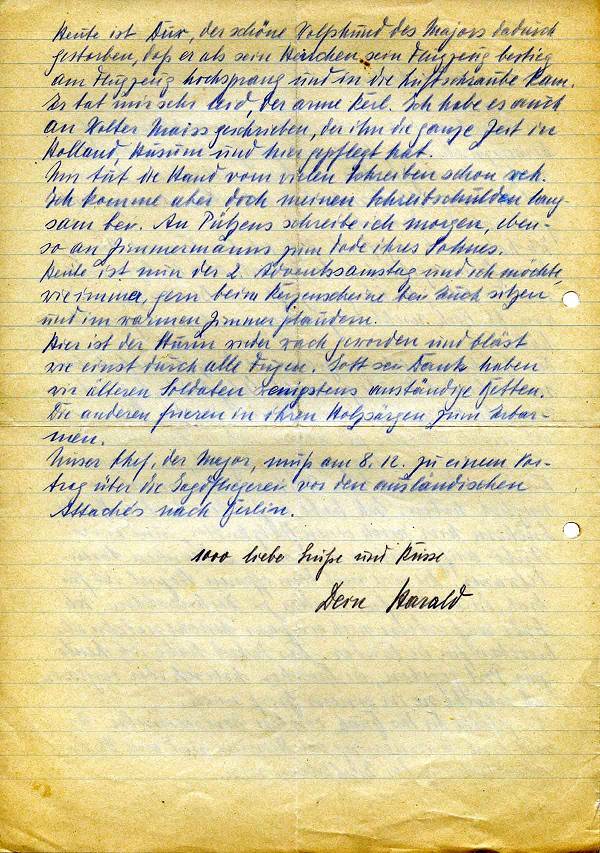 Heute ist Dux, der schöne Wolfshund des Majors dadurch
gestorben, daß er als sein Herrchen sein Flugzeug bestieg
am Flugzeug hochsprang und in die Luftschraube kam.
Er tat mir sehr leid, der arme Kerl. Ich habe es auch
an Walter geschrieben, der ihn die ganze Zeit in
Holland, Husum und hier gepflegt hat.
Mir tut die Hand vom vielen Schreiben schon weh.
Ich komme aber doch meinen Schreibschulden lang-
sam bei. An Pützens schreibe ich morgen, eben-
so an Zimmermanns zum Tode ihres Sohnes.
Heute ist nun der 2. Adventssamstag und ich möchte,
wie immer, gern beim Kerzenscheine bei Euch sitzen
und im warmen Zimmer plaudern.
Hier ist der Sturm wieder wach geworden und bläst
wie einst durch alle Fugen. Gott sei Dank haben
wir älteren Soldaten wenigstens anständige Betten.
Die anderen frieren in ihren Holzsärgen zum Erbar-
men.
Unser Chef, der Major, muß am 8.12. zu einem Vor-
trag über die Jagdfliegerei vor den ausländischen
Attachés nach Berlin.
1000 liebe Grüße und Küsse
Dein Harald